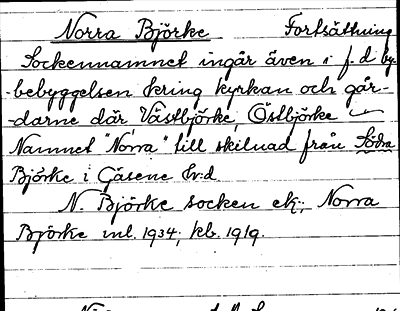 Norra Björke Fortsättning
Sockennamnet ingår även i f.d by-
-bebyggelsen kring kyrkan och går-
-darne där Västbjörke, Östbjörke
Namnet "Norra" till skilnad från Södra
Björke i Gäsene hr:d
N. Björke socken ek;, Norra
Björke inl. 1934; kb. 1919.